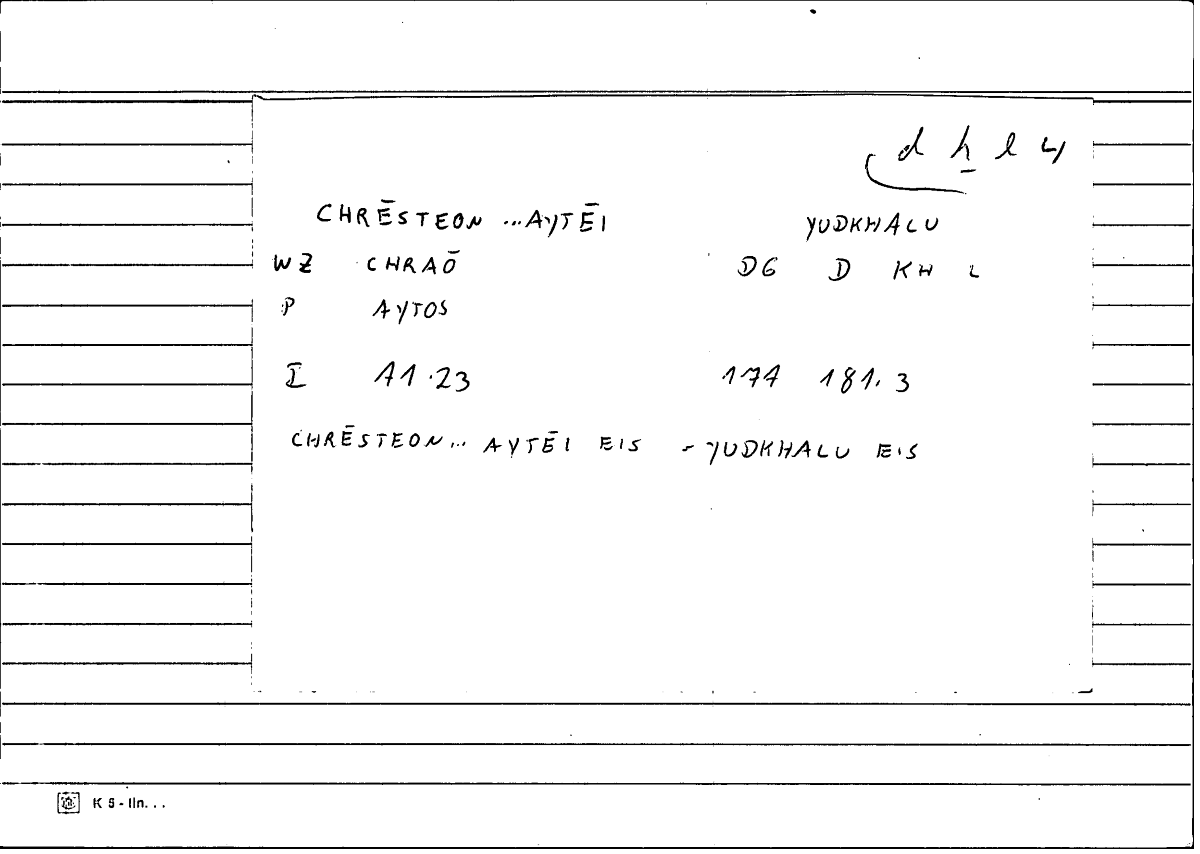 d ḫ l 4
CHRĒSTEON ... AYTĒI YUDKHALU
WZ CHRAŌ DG D KH L
P AYTOS
I 11.23 174 181.3
CHRĒSTEON ... AYTĒI EIS - YUDKHALU EIS
K 5 - lln. . .